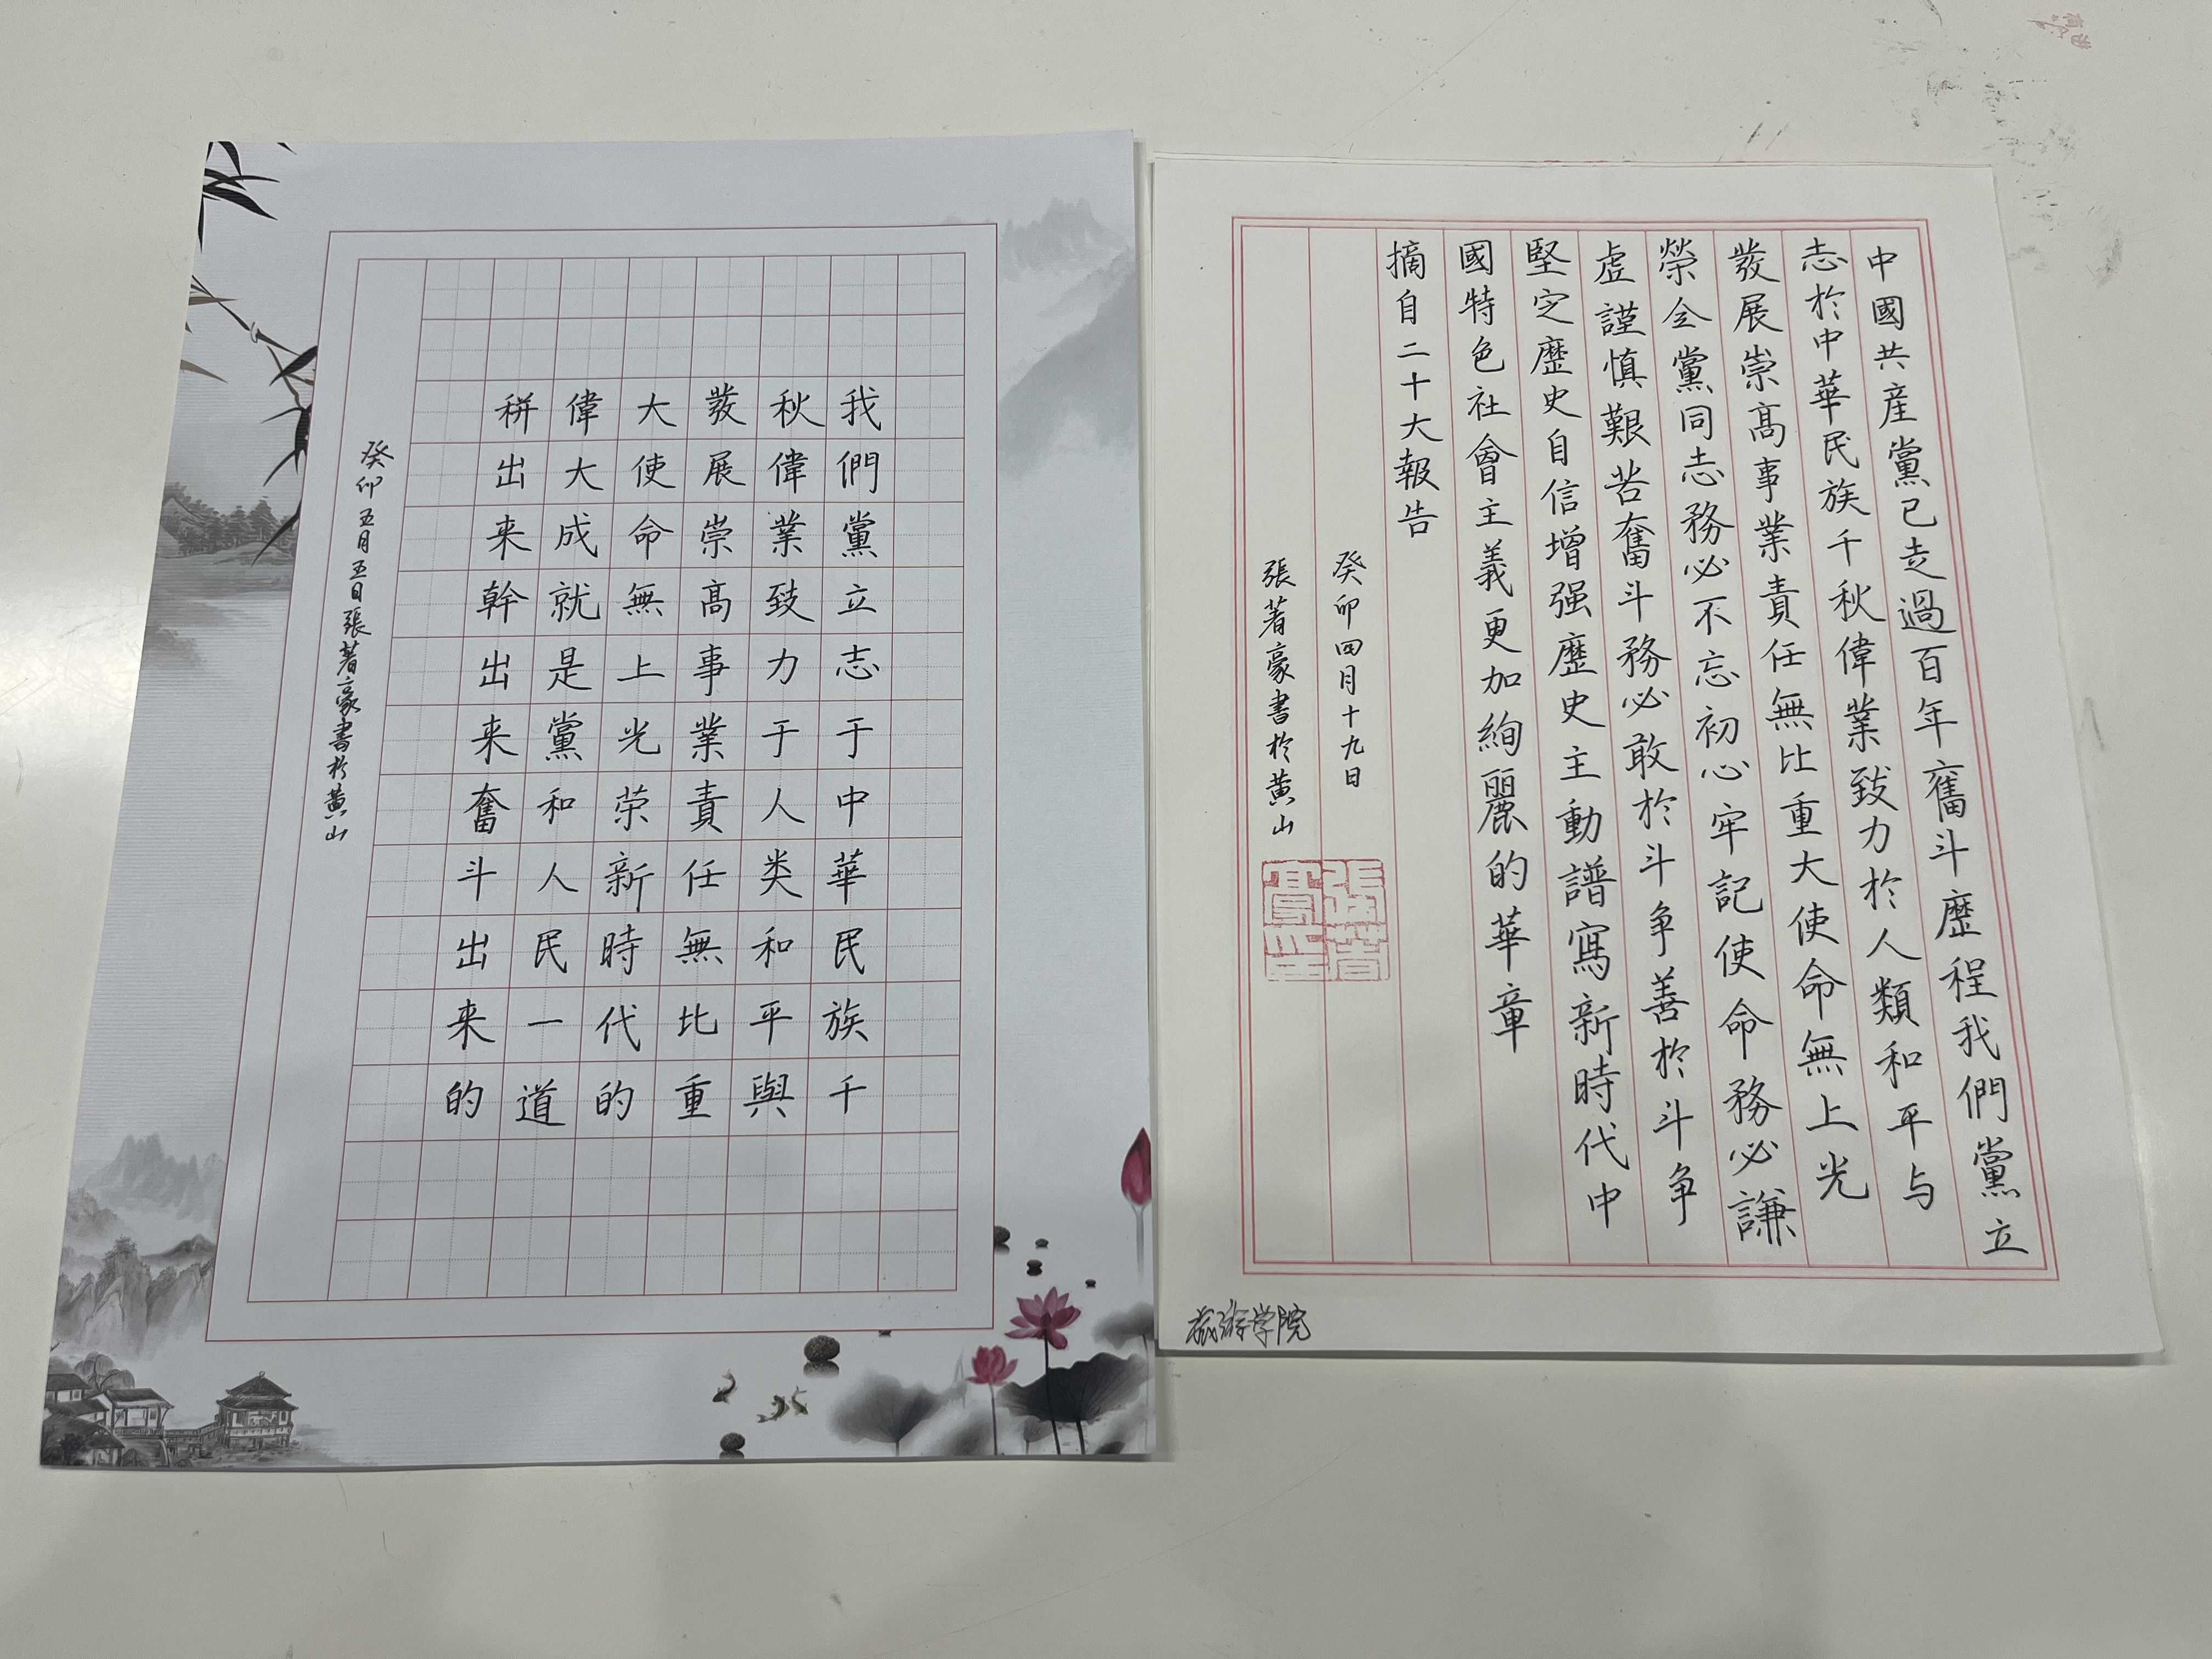 我們黨立志于中華民族千
秋偉業致力于人类和平與
發展崇高事業責任無比重
大使命無上光荣新時代的
偉大成就是黨和人民一道
拼出来幹出来奮斗出来的
癸卯五月五日張著豪書於黄山
中國共産黨已走過百年奮斗歷程我們黨立
志於中華民族千秋偉業致力於人類和平与
發展崇高事業責任無比重大使命無上光
榮全黨同志務必不忘初心牢記使命務必謙
虚謹慎艱苦奮斗務必敢於斗争善於斗争
堅定歷史自信增强歷史主動譜寫新時代中
國特色社會主義更加絢麗的華章
摘自二十大報告
癸卯四月十九日
張著豪書於黄山
学院